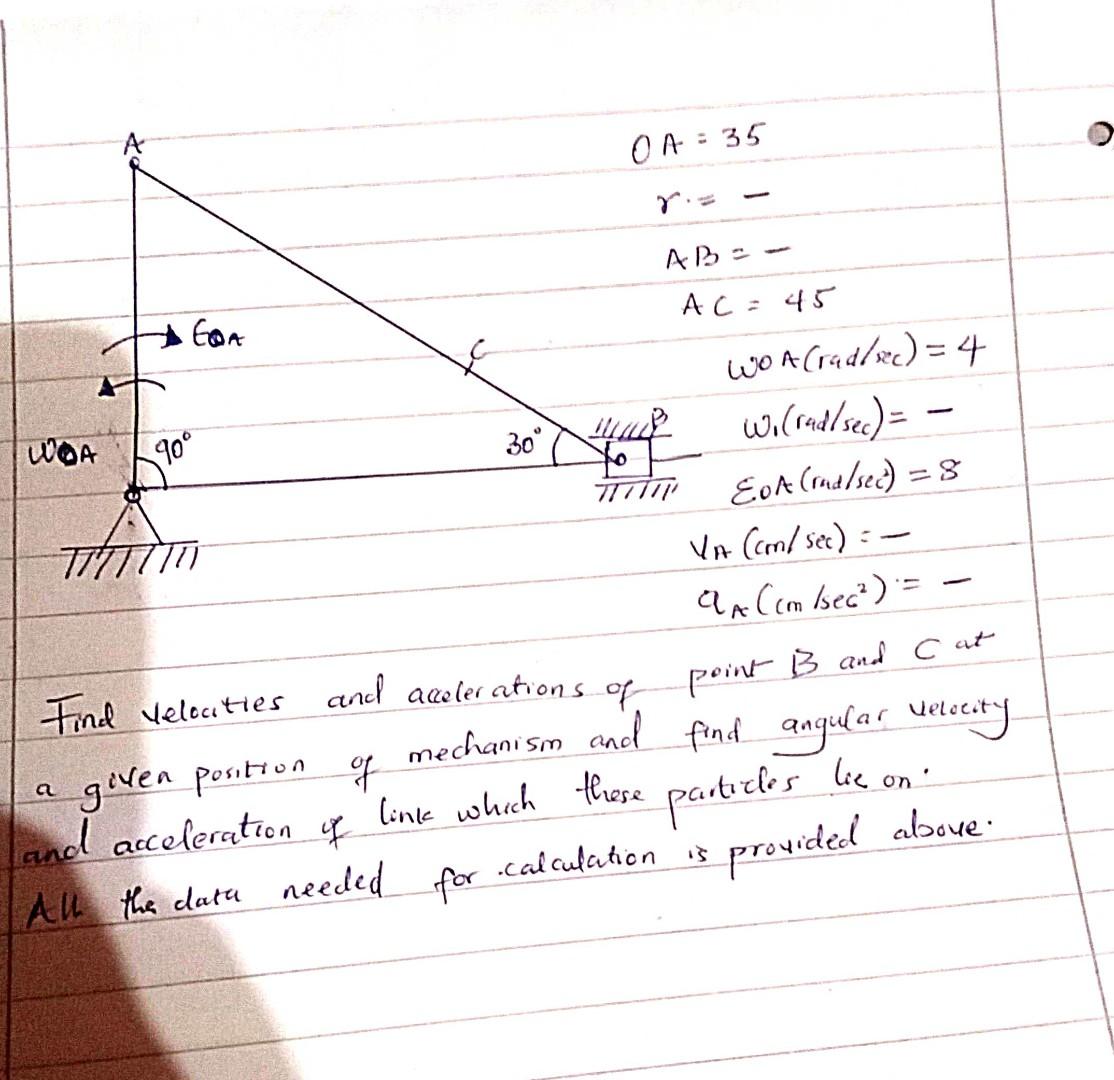 A
OA = 35
r = -
AB = -
AC = 45
EOA
C
WOA (rad/sec) = 4
B
W1 (rad/sec) = -
WOA
90°
30°
O
εOA (rad/sec²) = 8
VA (cm/sec) = -
aA (cm/sec²) = -
Find velocities and accelerations of point B and C at
a given position of mechanism and find angular velocity
and acceleration of link which these particles lie on.
All the data needed for calculation is provided above.